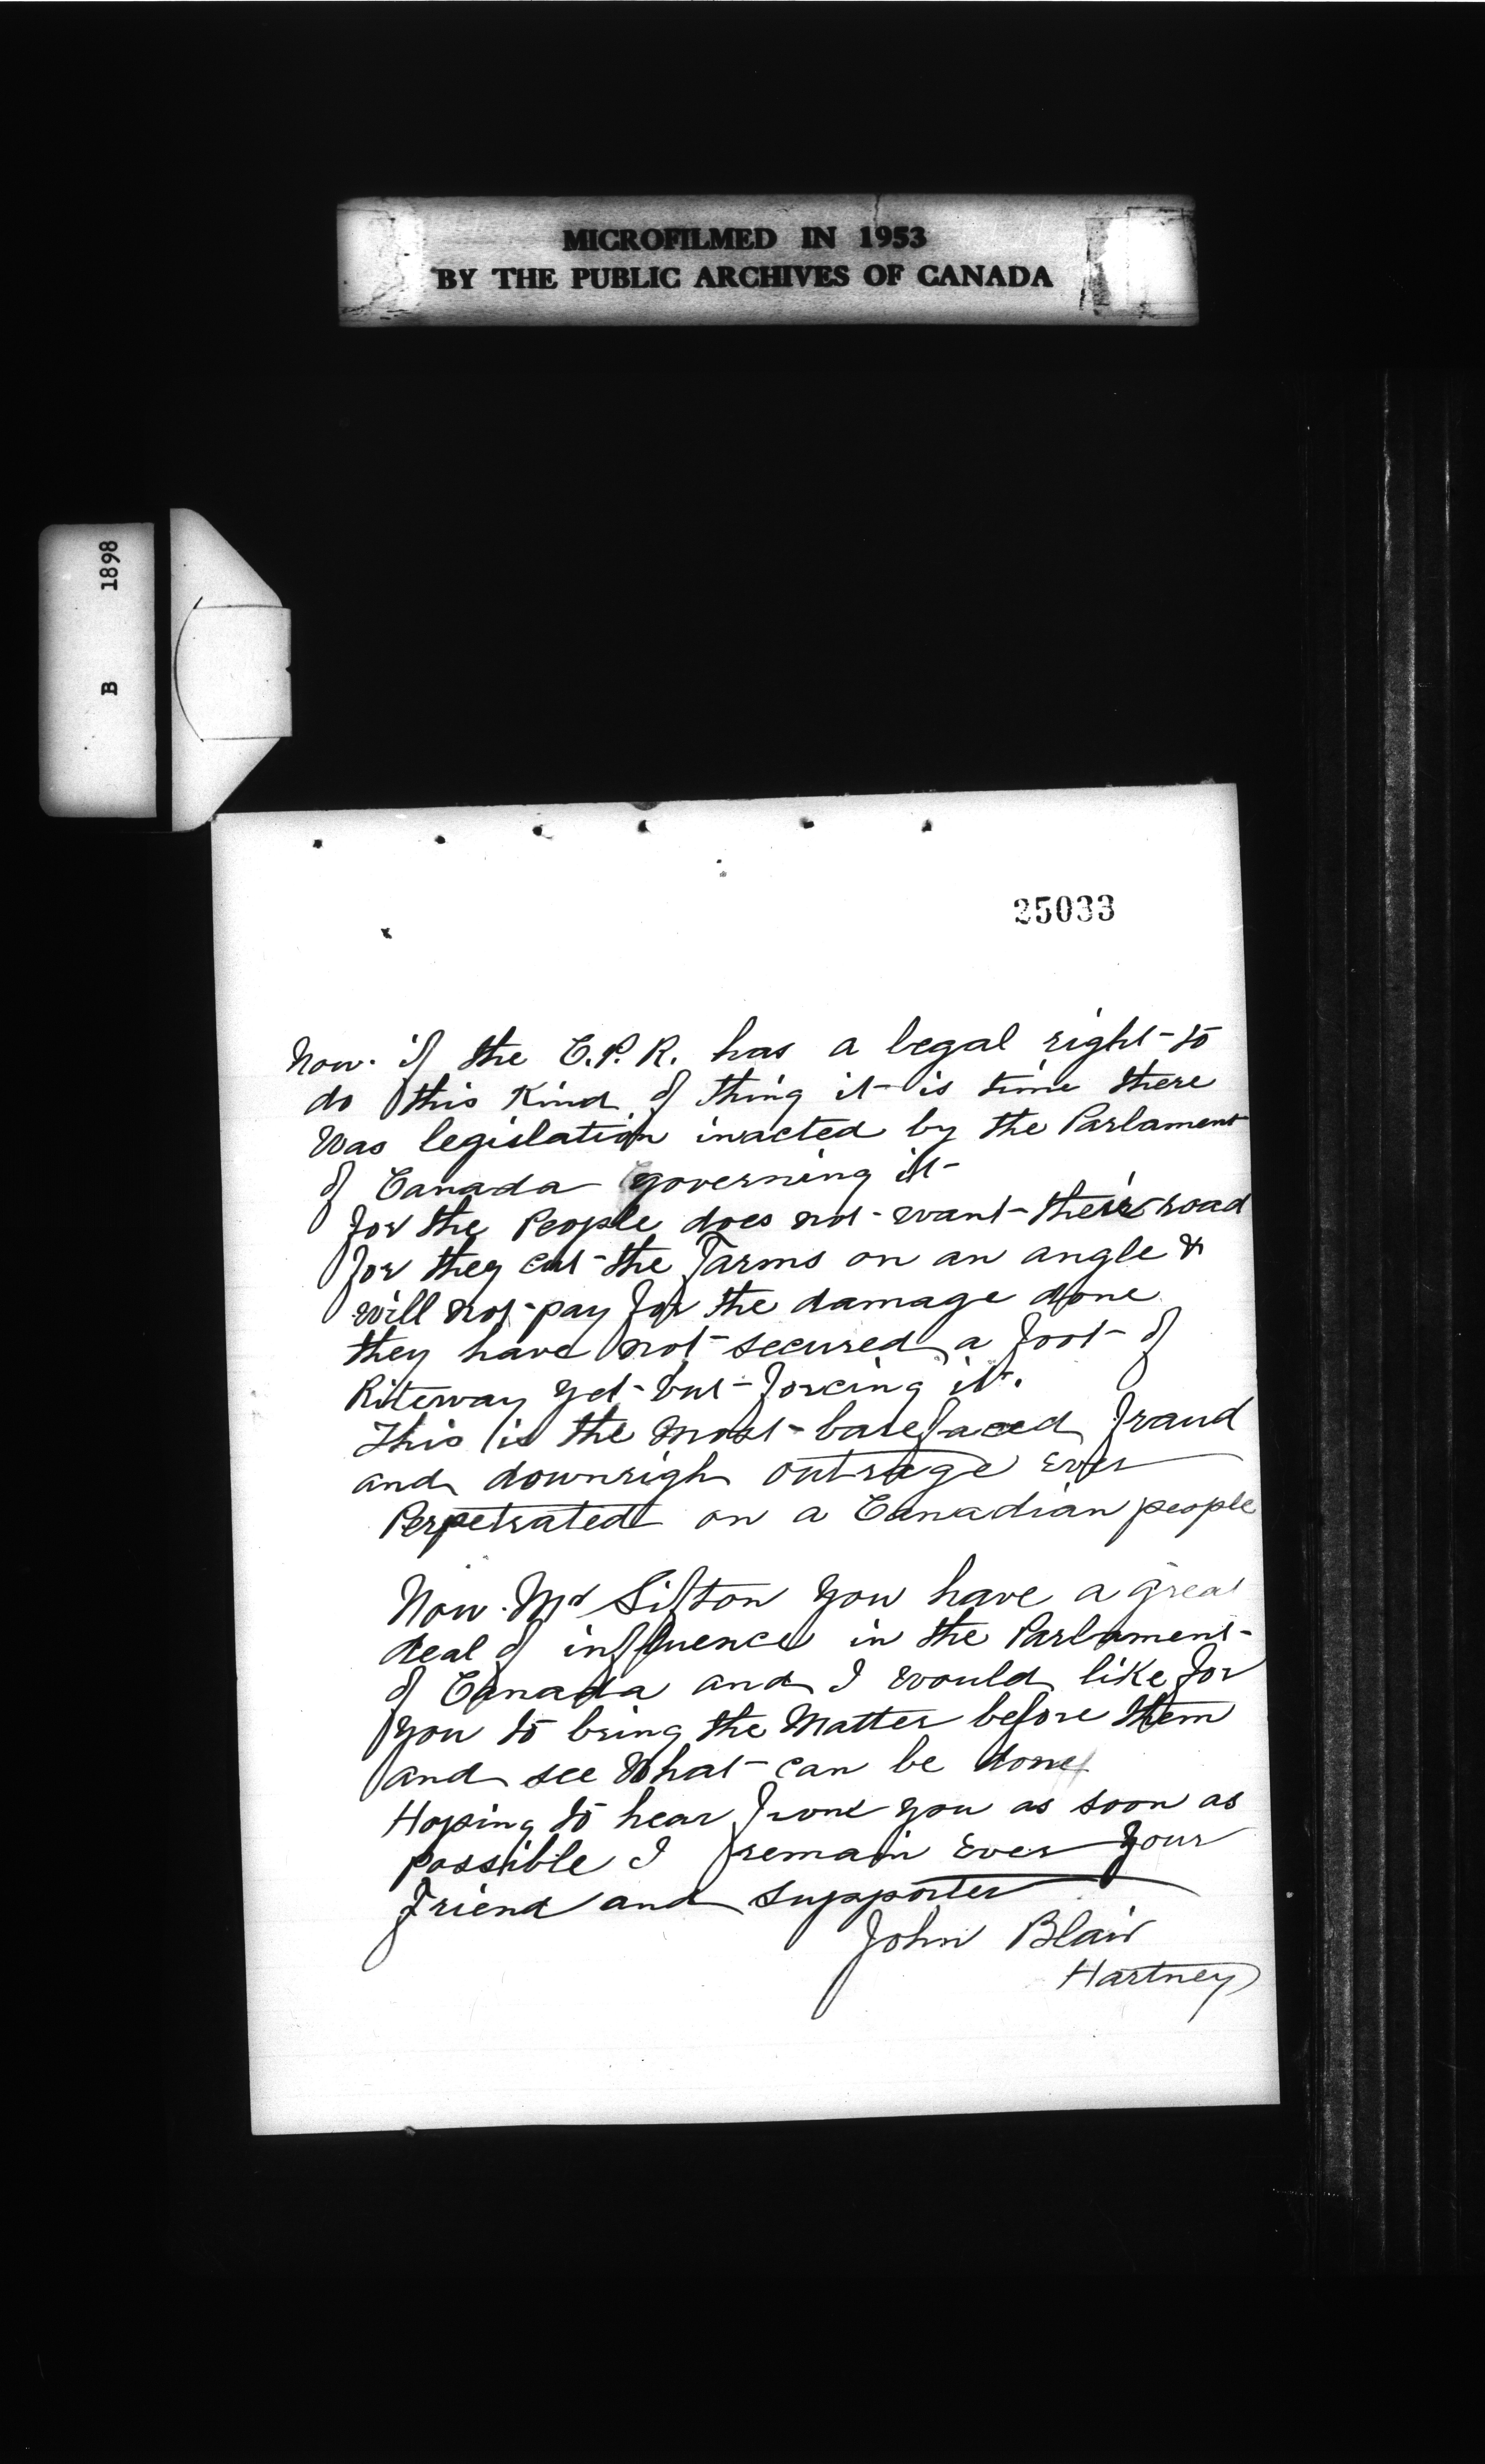 MICROFILMED IN 1953
BY THE PUBLIC ARCHIVES OF CANADA
B 1898
25033
Now. if the C.P.R. has a legal right to
do this Kind of thing it is time there
Was legislation inacted by the Parlament
of Canada governing it
for the People does not want their road
for they cut the Farms on an angle &
will not pay for the damage done
they have not secured a foot of
Riteway yet but forcing it.
This is the most barefaced fraud
and downrigh outrage ever
Perpetrated on a Canadian people
Now. Mr Sifton you have a great
deal of influence in the Parlament
of Canada and I would like for
you to bring the Matter before them
and see What can be done
Hoping to hear from you as soon as
possible I remain Ever your
Friend and supporter
John Blair
Hartney